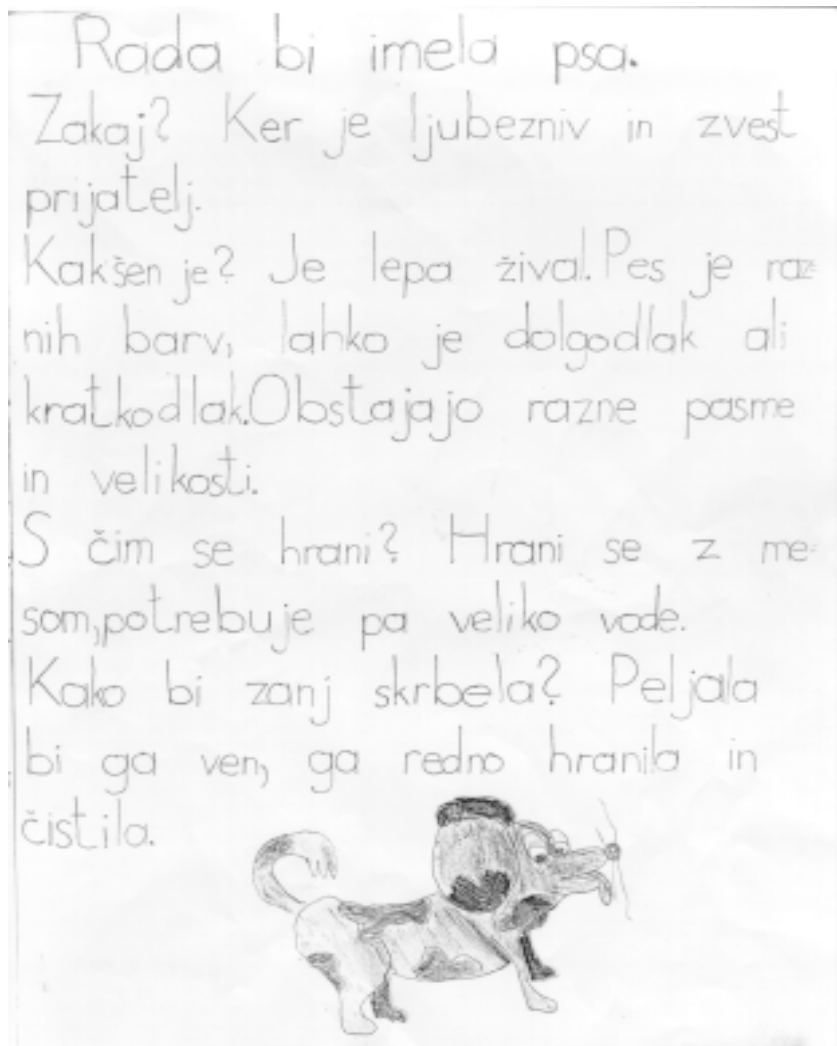 Rada bi imela psa.
Zakaj? Ker je ljubezniv in zvest
prijatelj.
Kakšen je? Je lepa žival. Pes je raz-
nih barv, lahko je dolgodlak ali
kratkodlak. Obstajajo razne pasme
in velikosti.
S čim se hrani? Hrani se z me-
som, potrebuje pa veliko vode.
Kako bi zanj skrbela? Peljala
bi ga ven, ga redno hranila in
čistila.